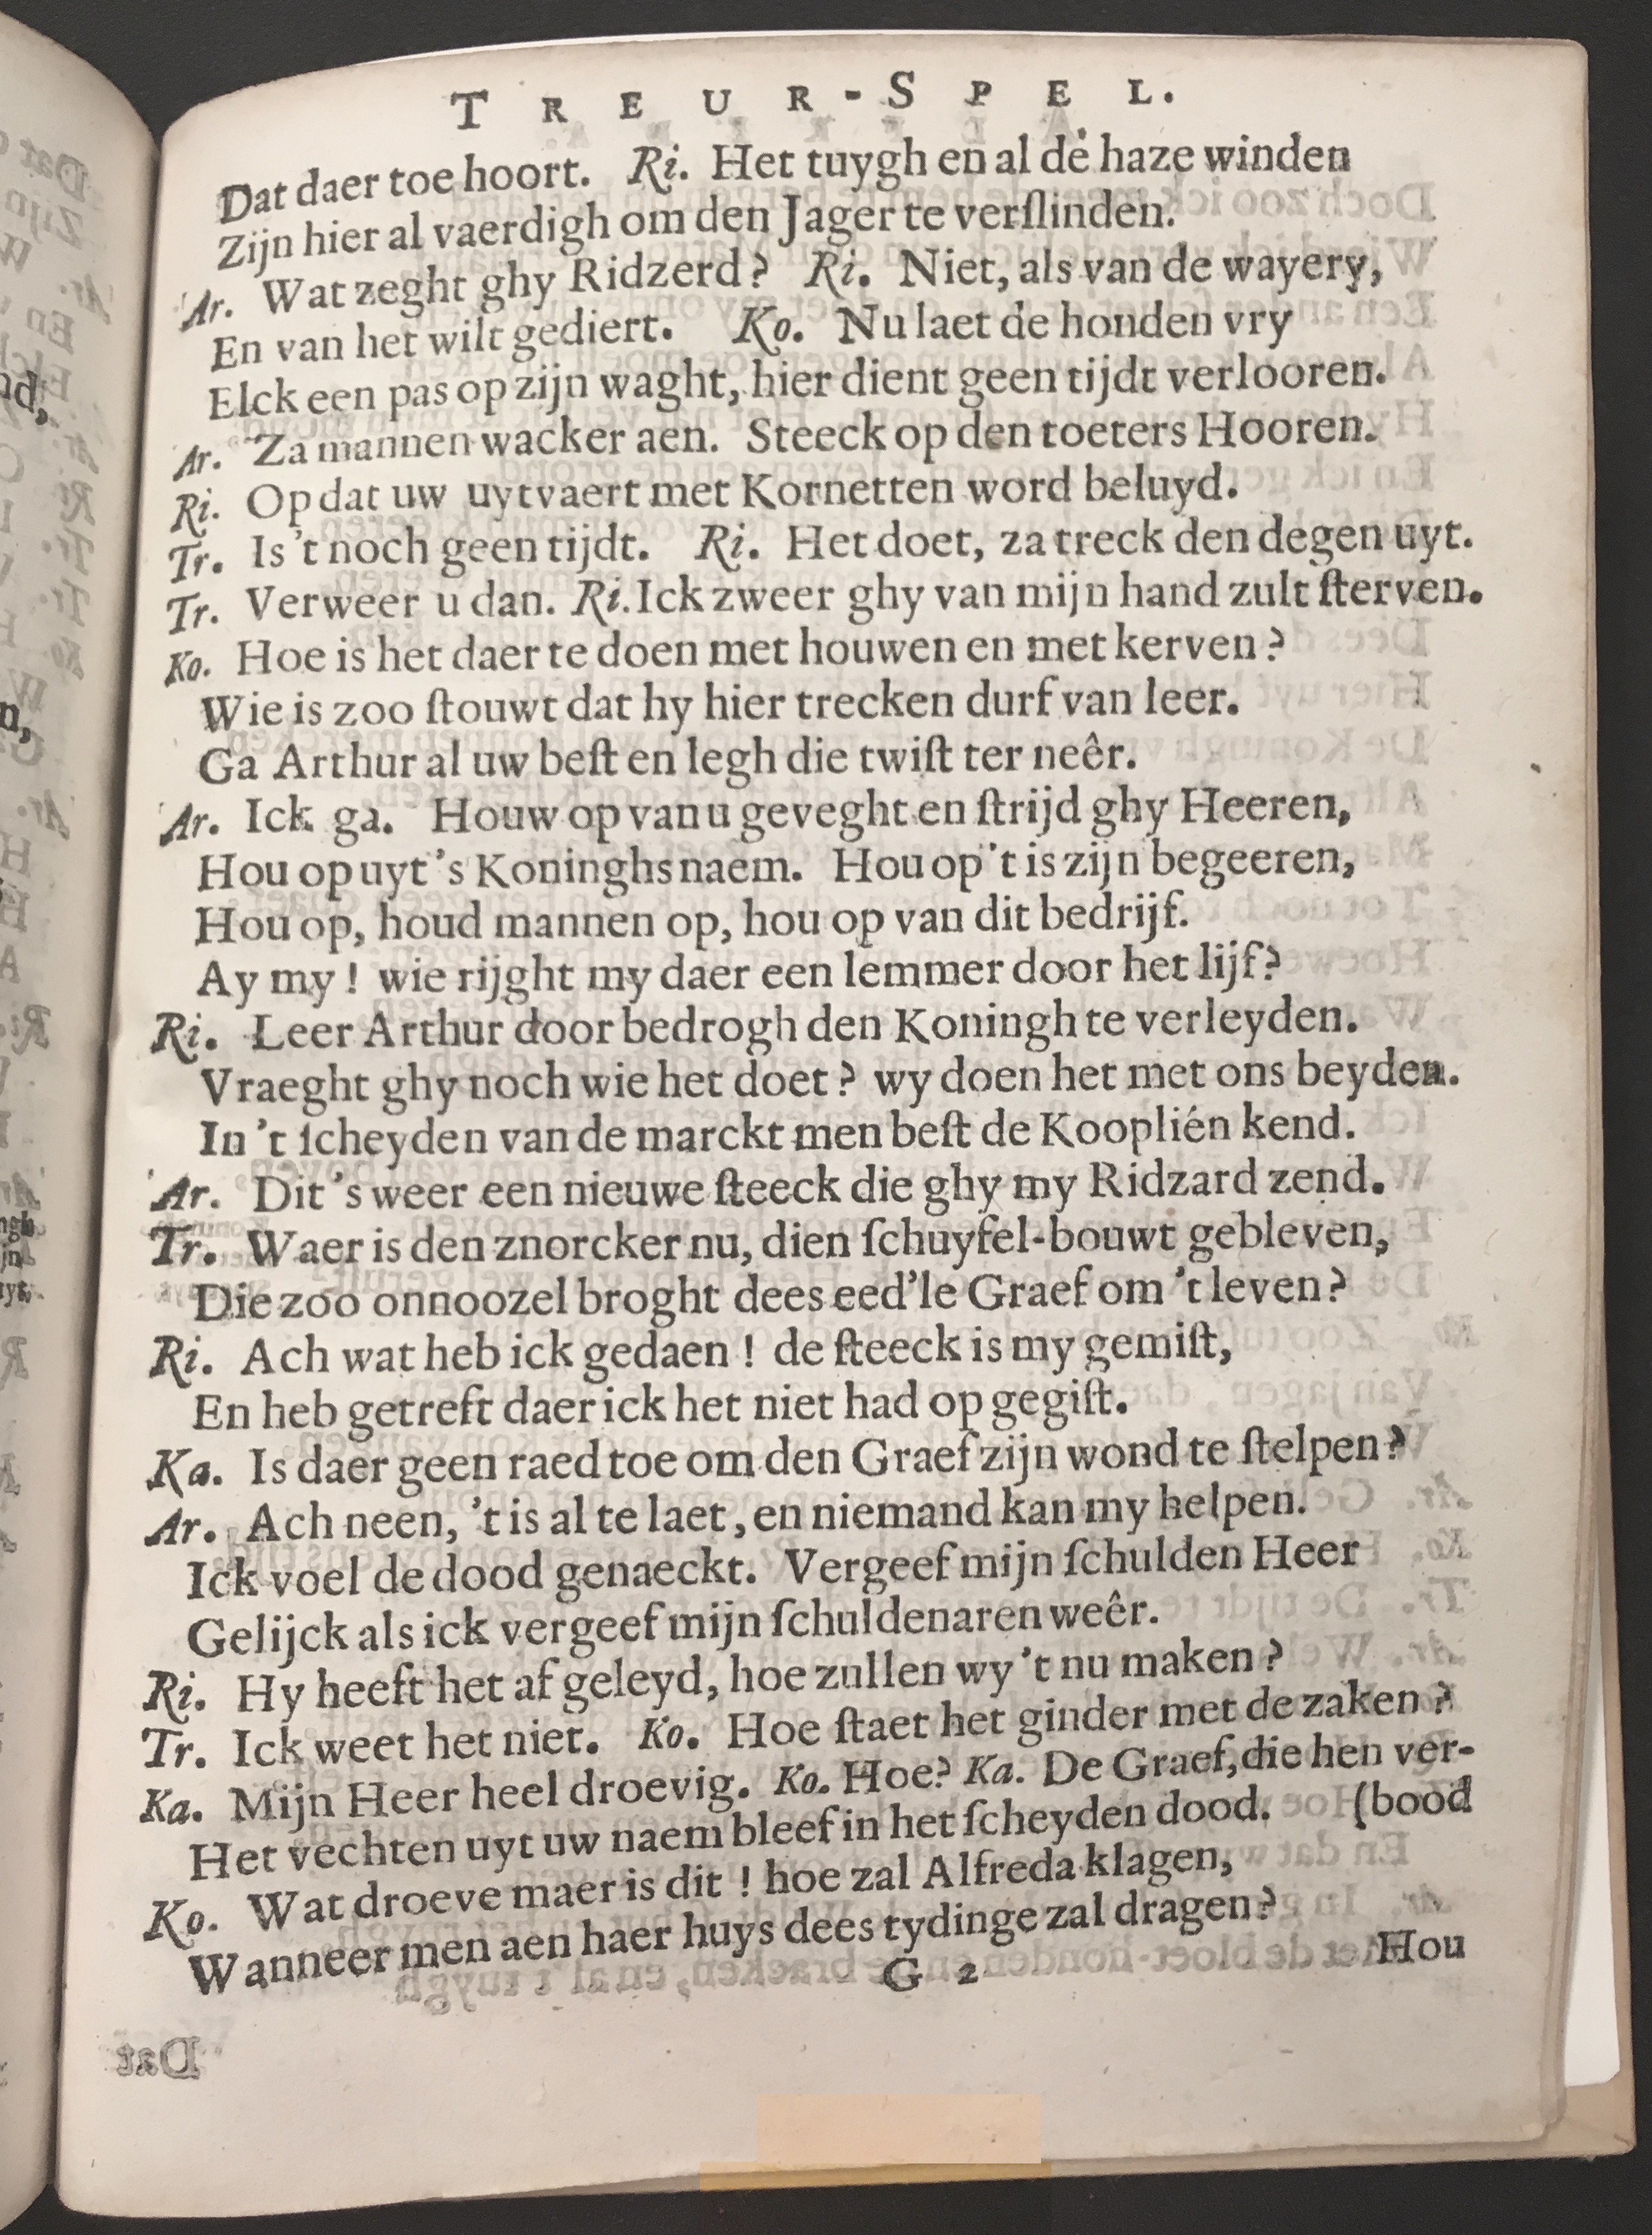 TREUR-SPEL.
Dat daer toe hoort. Ri. Het tuygh en al de haze winden
Zijn hier al vaerdigh om den Jager te verſlinden.
Ar. Wat zeght ghy Ridzerd? Ri. Niet, als van de wayery,
En van het wilt gediert. Ko. Nu laet de honden vry
Elck een pas op zijn waght, hier dient geen tijdt verlooren.
Ar. Za mannen wacker aen. Steeck op den toeters Hooren.
Ri. Op dat uw uytvaert met Kornetten word beluyd.
Tr. Is 't noch geen tijdt. Ri. Het doet, za treck den degen uyt.
Tr. Verweer u dan. Ri. Ick zweer ghy van mijn hand zult ſterven.
Ko. Hoe is het daer te doen met houwen en met kerven?
Wie is zoo ſtouwt dat hy hier trecken durf van leer.
Ga Arthur al uw beſt en legh die twiſt ter neêr.
Ar. Ick ga. Houw op van u geveght en ſtrijd ghy Heeren,
Hou op uyt 's Koninghs naem. Hou op 't is zijn begeeren,
Hou op, houd mannen op, hou op van dit bedrijf.
Ay my! wie rijght my daer een lemmer door het lijf?
Ri. Leer Arthur door bedrogh den Koningh te verleyden.
Vraeght ghy noch wie het doet? wy doen het met ons beyden.
In 't ſcheyden van de marckt men beſt de Kooplién kend.
Ar. Dit 's weer een nieuwe ſteeck die ghy my Ridzard zend.
Tr. Waer is den znorcker nu, dien ſchuyfel-bouwt gebleven,
Die zoo onnoozel broght dees eed'le Graef om 't leven?
Ri. Ach wat heb ick gedaen! de ſteeck is my gemiſt,
En heb getreft daer ick het niet had op gegiſt.
Ka. Is daer geen raed toe om den Graef zijn wond te ſtelpen?
Ar. Ach neen, 't is al te laet, en niemand kan my helpen.
Ick voel de dood genaeckt. Vergeef mijn ſchulden Heer
Gelijck als ick vergeef mijn ſchuldenaren weêr.
Ri. Hy heeft het af geleyd, hoe zullen wy 't nu maken?
Tr. Ick weet het niet. Ko. Hoe ſtaet het ginder met de zaken?
Ka. Mijn Heer heel droevig. Ko. Hoe? Ka. De Graef, die hen ver-
Het vechten uyt uw naem bleef in het ſcheyden dood. (bood
Ko. Wat droeve maer is dit! hoe zal Alfreda klagen,
Wanneer men aen haer huys dees tydinge zal dragen?
G 2 Hou